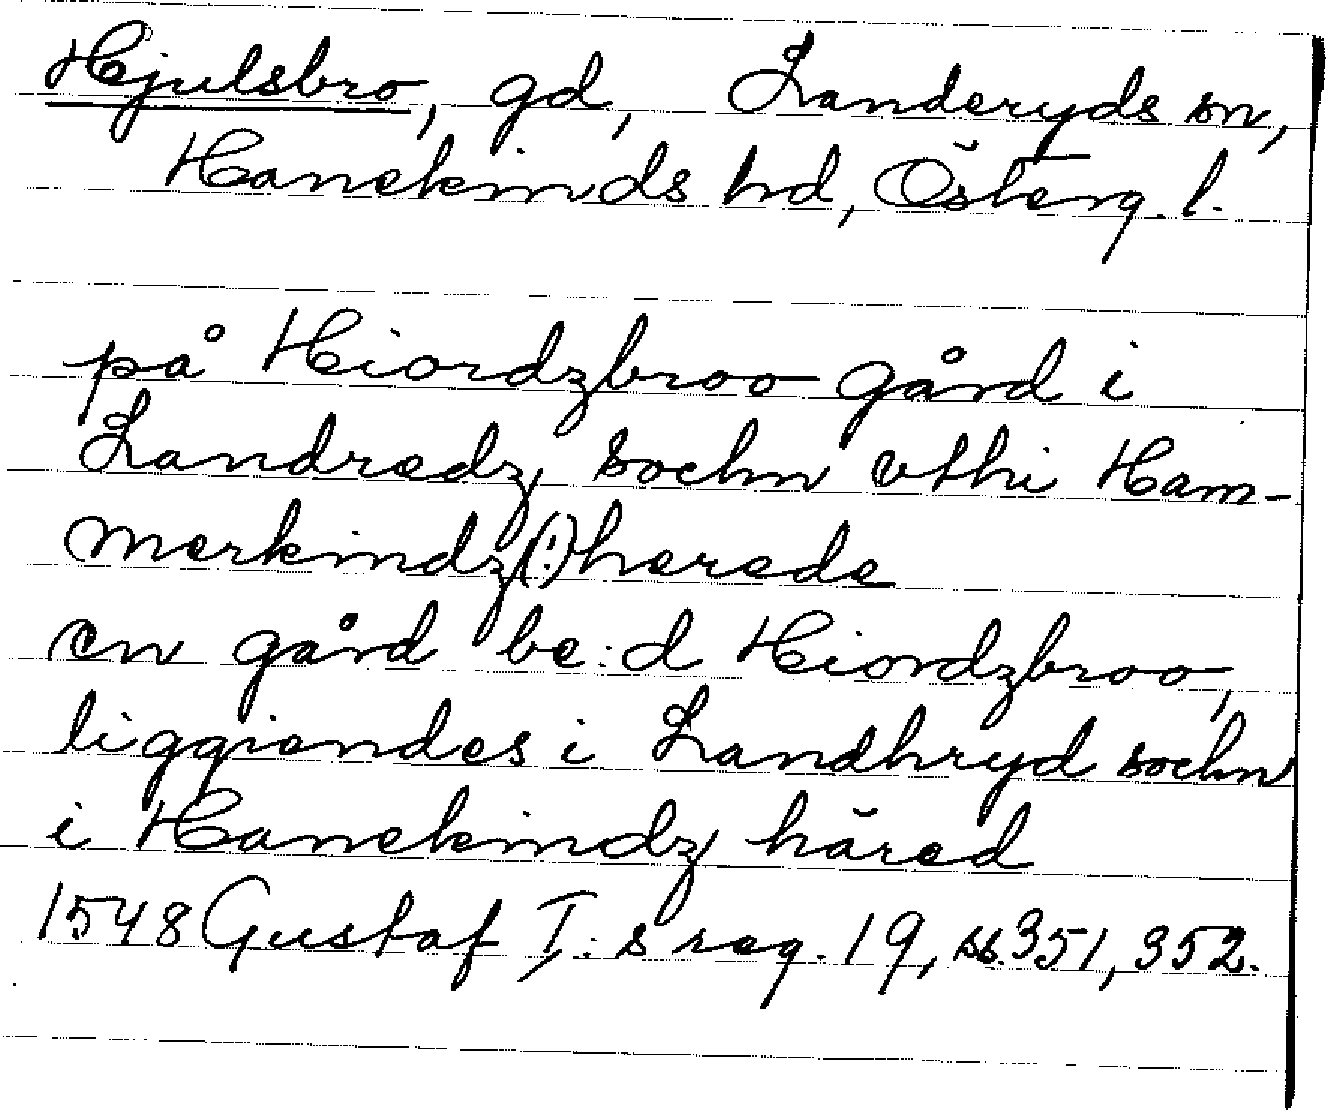 Hjulsbro, gd, Landeryds sn,
Hanekinds hd, Österg. l.
på Hiordzbroo gård i
Landredz sochn vthi Ham-
merkindz(!) herede
en gård be:d Hiordzbroo,
liggiendes i Landhryd sochn
i Hanekindz häred
1548 Gustaf I:s reg. 19, ss. 351, 352.